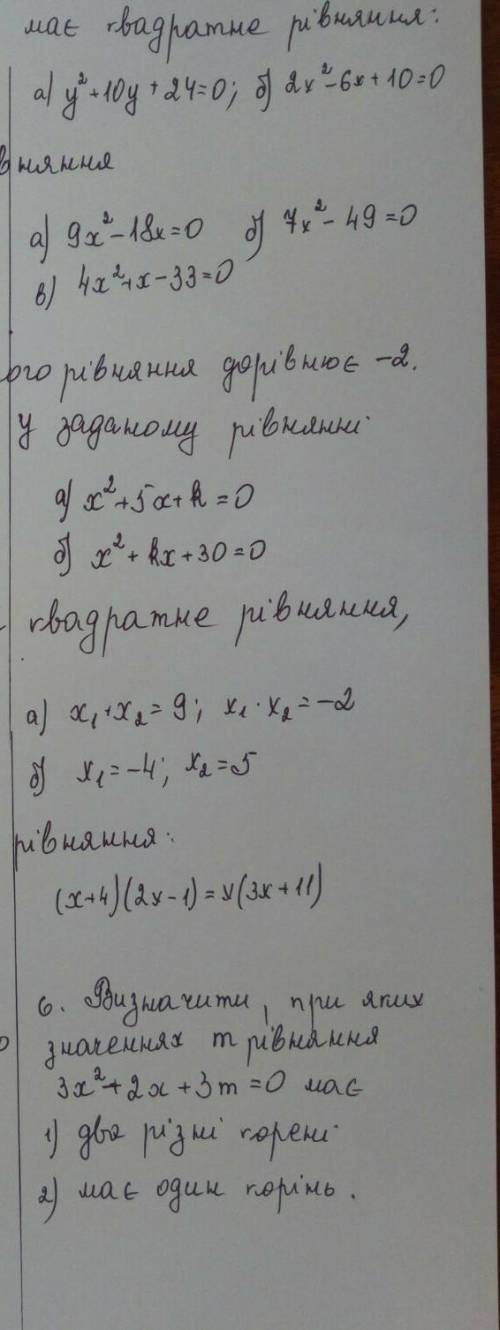 має квадратне рівняння:
а) y²+10y+24=0; б) 2x²-6x+10=0
вняння
а) 9x²-18x=0 б) 7x²-49=0
в) 4x²+x-33=0
ого рівняння дорівнює -2.
У заданому рівнянні
а) x²+5x+k=0
б) x²+kx+30=0
квадратне рівняння,
а) x₁+x₂=9; x₁·x₂=-2
б) x₁=-4; x₂=5
рівняння:
(x+4)(2x-1)=x(3x+11)
6. Визначити, при яких
значеннях m рівняння
3x²+2x+3m=0 має
1) два різні корені
2) має один корінь.